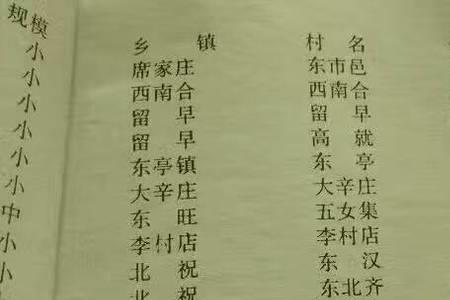 规模 乡镇 村名
小 席家庄 东市邑
小 西南合 西南合
小 留早 留早
小 留早 高就
小 东亭镇 东亭
小 大辛庄 大辛庄
中 东旺 五女集
小 李村店 李村店
小 北祝 东汉
北祝 东北齐